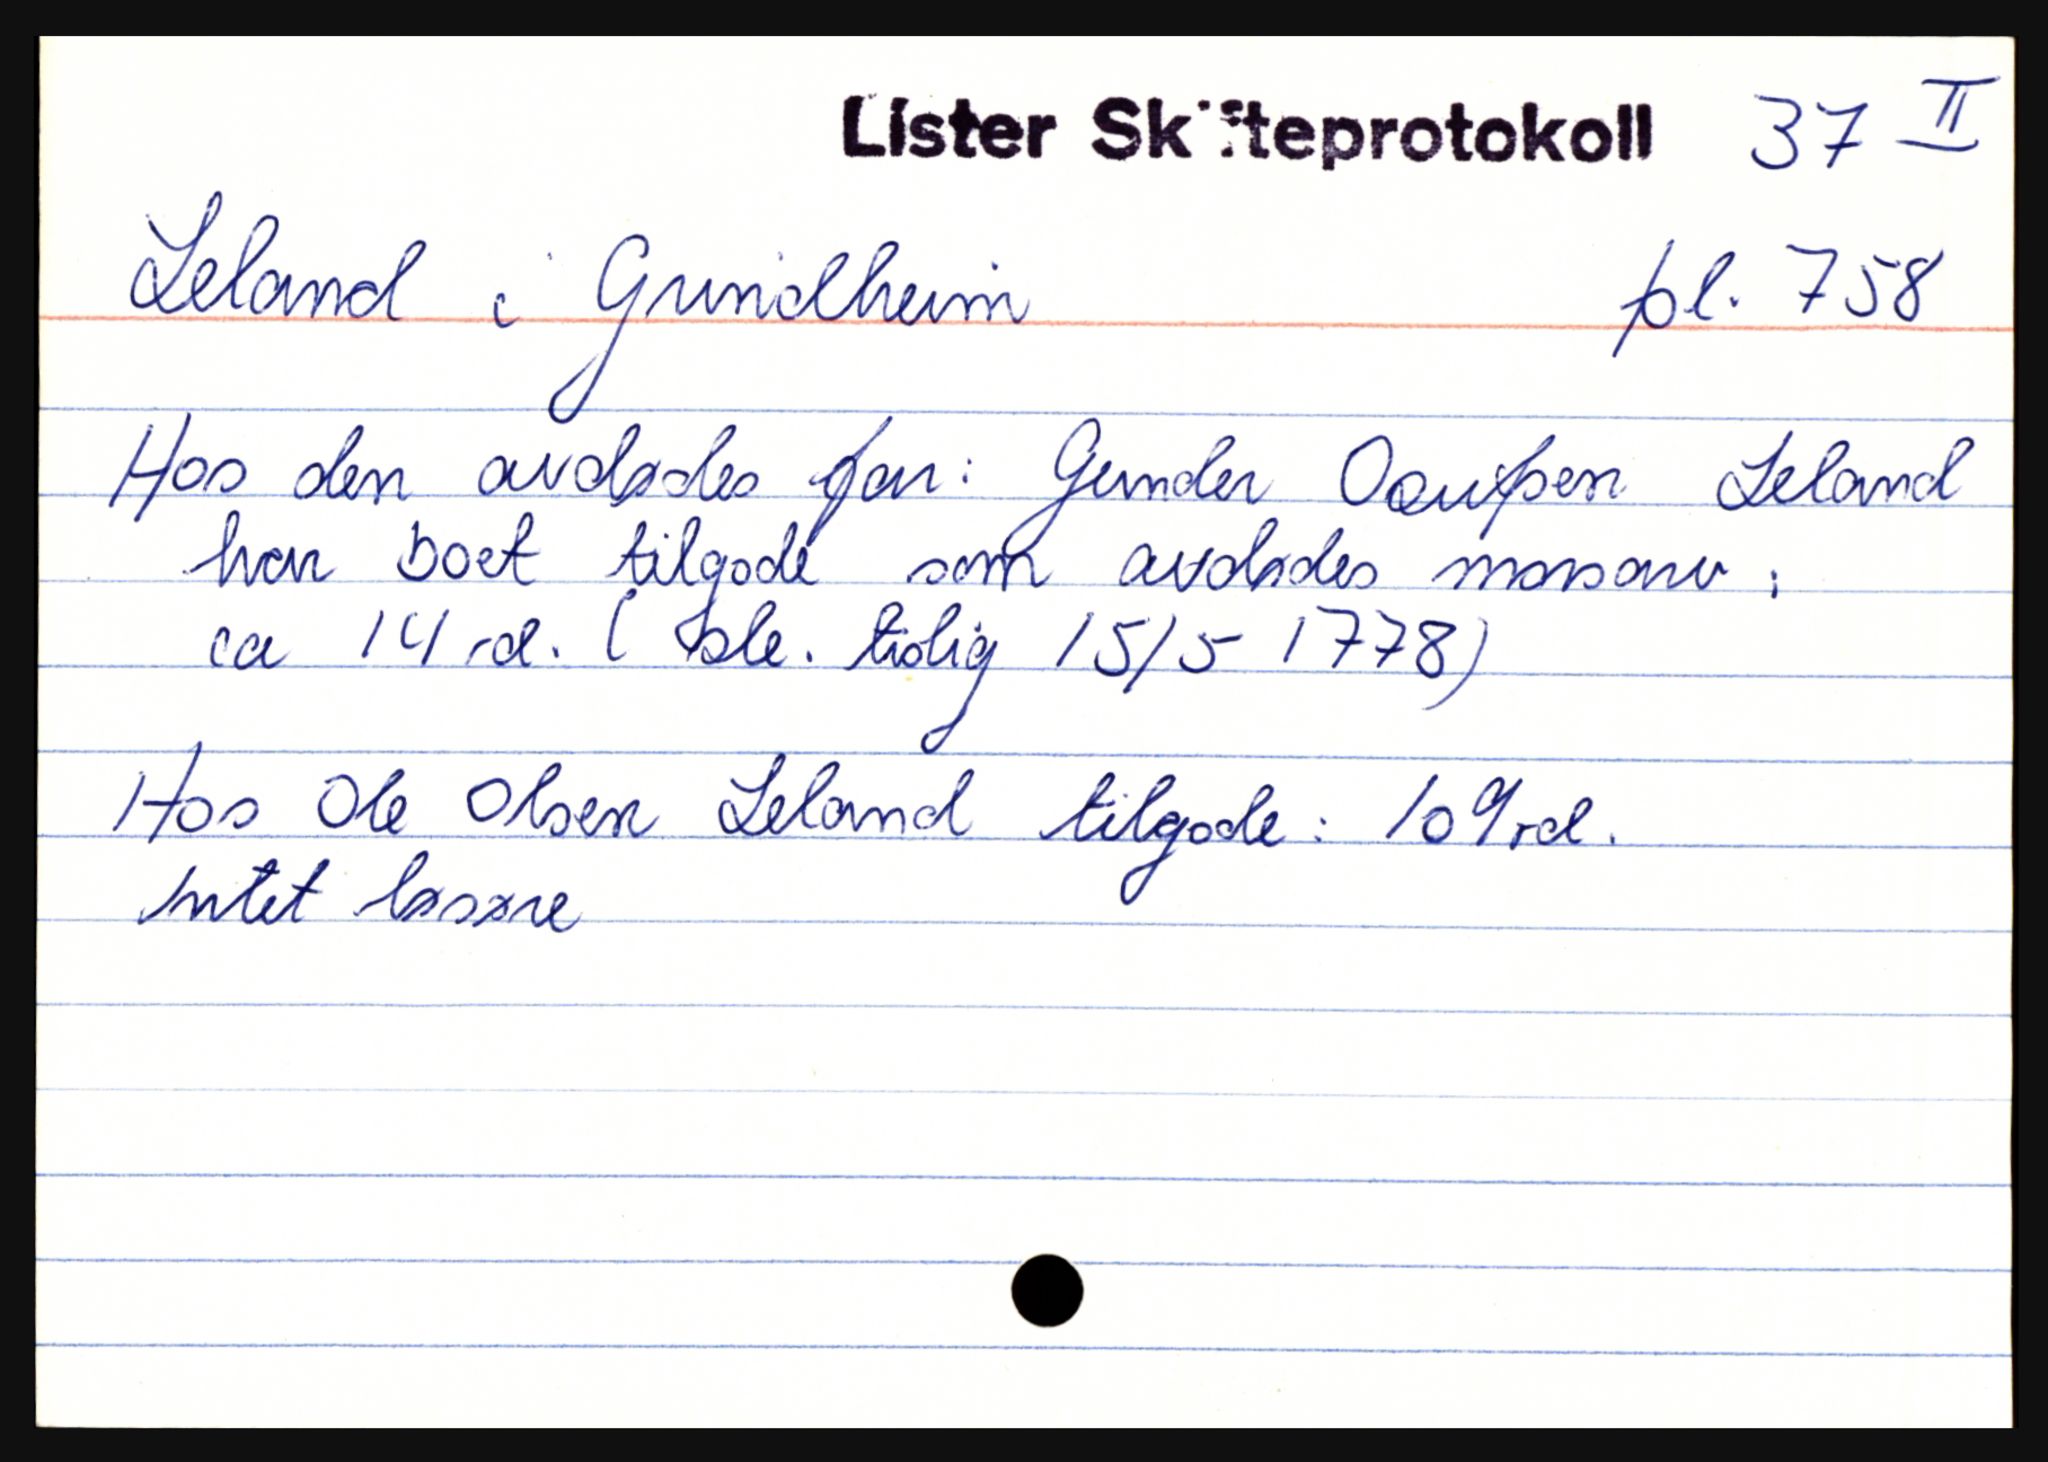 Lister Skifteprotokoll 37 II
Leland i Grindheim pl. 758
Hos den avdødes far: Gunder Osuldsen Leland
har boet tilgode som avdødes morsarv:
ca 14 rd. ( skle. tidlig 15/5 1778)
Hos Ole Olsen Leland tilgode: 109 rd.
Intet løsøre